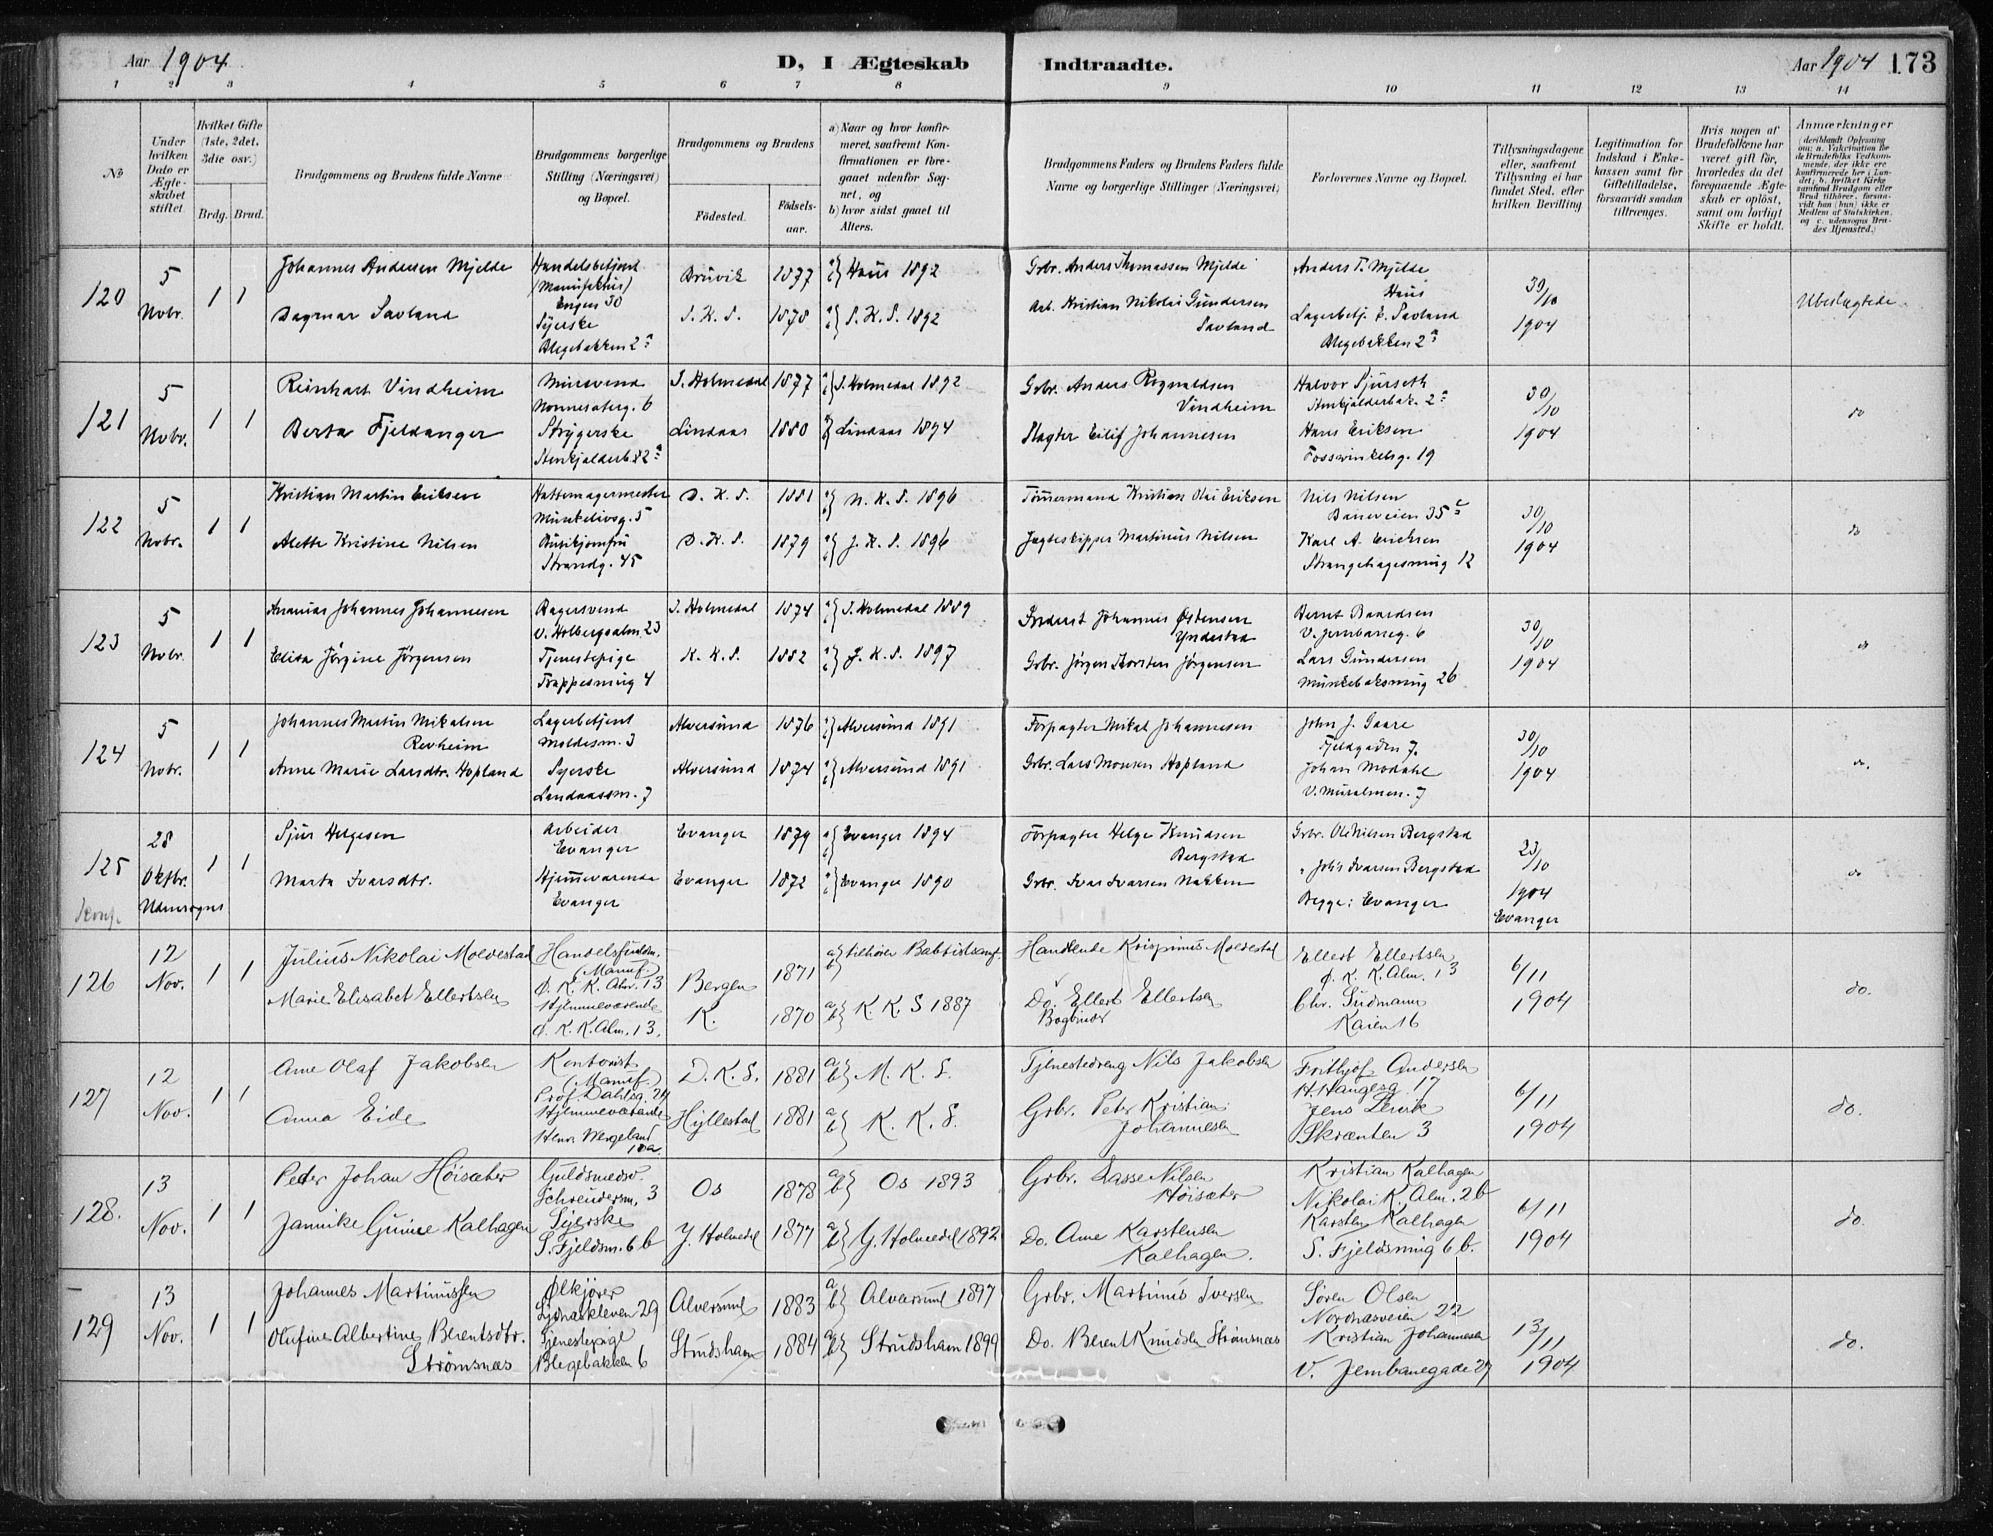 Aar 1904. D, I Ægteskab Indtraadte. Aar 1904 173
1 2 3 4 5 6 7 8 9 10 11 12 13 14
No
Under hvilken Dato er Ægteskabet stiftet.
Hvilket Gifte (1ste, 2det, 3die osv.)
Brdg. Brud.
Brudgommens og Brudens fulde Navne
Brudgommens borgerlige Stilling (Næringsvei) og Bopæl.
Brudgommens og Brudens
Fødested. Fødselsaar.
a) Naar og hvor konfirmeret, saafremt Konfirmationen er foregaaet udenfor Sognet, og
b) hvor sidst gaaet til Alters.
Brudgommens Faders og Brudens Faders fulde Navne og borgerlige Stillinger (Næringsvei)
Forlovernes Navne og Bopæl.
Tillysningsdagene eller, saafremt Tillysning ei har fundet Sted, efter hvilken Bevilling
Legitimation for Indskud i Enkekassen samt for Giftetilladelse, forsaavidt saadan tiltrænges.
Hvis nogen af Brudefolkene har været gift før, hvorledes da det foregaaende Ægteskab er opløst, samt om lovligt Skifte er holdt.
Anmærkninger
(deriblandt Oplysning om: a. Vakcination for de Brudefolks Vedkommende, der ikke ere konfirmerede her i Landet; b. hvilket Kirkesamfund Brudgom eller Brud tilhører, forsaavidt han (hun) ikke er Medlem af Statskirken, og c. udensogns Brudes Hjemsted.)
120 5 Novbr. 1 1
Johannes Andersen Mjelde
Handelsbetjent (Manufaktur) Engen 30
Bruvik 1877 Haus 1892
Grbr. Anders Thomassen Mjelde
Anders T. Mjelde Haus
30/10 1904
Ubeslægtede
Dagmar Savland
Syerske Blegebakken 2a
D. K. S. 1878 D. K. S. 1892
Arb. Kristian Nikolai Gundersen Savland
Lagerbetj. K. Savland Blegebakken 2a
121 5 Novbr. 1 1
Reinhart Vindheim
Murersvend Nonnesæterg. 6
I. Holmedal 1877 I. Holmedal 1892
Grbr. Anders Rognaldsen Vindheim
Halvor Sjurseth Stenkjælderbak. 2a
30/10 1904
do
Berta Fjeldanger
Strygerske Stenkjælderb. 2a
Lindaas 1880 Lindaas 1894
Slagter Eilif Johannesen
Hans Eriksen Fosswinkelsg. 19
122 5 Novbr. 1 1
Kristian Martin Eriksen
Hattemagermester Munkelivsg. 5
D. K. S. 1881 N. K. S. 1896
Tømmermand Kristian Olai Eriksen
Nils Nilsen Baneveien 35
30/10 1904
do
Alette Kristine Nilsen
Butikjomfru Strandg. 45
D. K. S. 1879 J. K. S. 1896
Jagteskipper Martinus Nilsen
Karl A. Erichsen Strangehagesmug 12
123 5 Novbr. 1 1
Ananias Johannes Johannesen
Bagersvend V. Holbergsalm. 23
I. Holmedal 1874 I. Holmedal 1889
Inderst Johannes Østensen Yndestad
Bernt Baardsen V. Jernbaneg. 6
30/10 1904
do
Elisa Jørgine Jørgensen
Tjenestepige Trappesmug 4
K. K. S. 1882 J. K. S. 1897
Grbr. Jørgen Torsten Jørgensen
Lars Gundersen Munkebaksmug 26
124 5 Novbr. 1 1
Johannes Martin Mikalsen Revheim
Lagerbetjent Moldesm. 3
Alversund 1876 Alversund 1891
Forpagter Mikal Johannesen
John J. Gaare Fjeldgaden 7.
30/10 1904
do.
Anne Marie Larsdtr. Hopland
Syerske Landaassm. 7
Alversund 1874 Alversund 1891
Grbr. Lars Monsen Hopland
Johan Modahl V. Muralmen. 7
125 28 Oktbr. Udensogns 1 1
Sjur Helgesen
Arbeider Evanger
Evanger 1879 Evanger 1894
Forpagter Helge Knudsen Bergstad
Grbr. Ole Nilsen Bergstad
23/10 1904 Evanger
do
Marta Ivarsdtr.
Hjemmeværende Evanger
Evanger 1872 Evanger 1890
Grbr. Ivar Ivarsen Nakken
" Johs Ivarsen Bergstad
Begge: Evanger
126 12 Nov. 1 1
Julius Nikolai Moldestad
Handelsfuldm. (Manuf.) Ø. K. K. Alm. 13
Bergen 1871 tilhører Babtistsamf.
Handlende Krispinus Moldestad
Ellert Ellertsen Ø. K. K. Alm. 13
6/11 1904
do.
Marie Elisabet Ellertsen
Hjemmeværende Ø. K. K. Alm. 13,
K. 1870 K. K. S 1887
Do. Ellert Ellertsen Bogbinder
Chr. Sudmann Kaien 16
127 12 Nov. 1 1
Arne Olaf Jakobsen
Kontorist (Manuf.) Prof. Dahlsg. 24
D. K. S. 1881 M. K. S.
Tjenestedreng Nils Jakobsen
Frithjof Andersen H. Haugesg. 17
6/11 1904
do.
Anna Eide
Hjemmeværende Henr. Wergeland 10a
Hyllestad 1881 K. K. S.
Grbr. Peter Kristian Johannesen
Jens Lervik Skrænten 3
128. 13 Nov. 1 1
Peder Johan Höisæter
Guldsmedsv. Schreudersm. 3
Os 1878 Os 1893
Grbr. Lasse Nilsen Höisæter
Kristian Kalhagen Nikolai K. Alm. 2b
6/11 1904
do.
Jannike Gurine Kalhagen
Syerske S. Fjeldsm. 6b
Y. Holmedal 1877 Y. Holmedal 1892
Do. Arne Karstensen Kalhagen.
Karsten Kalhagen S. Fjeldsmug 6b.
129 13 Nov. 1 1
Johannes Martinussen
Ølkjører Sydnæskleven 29
Alversund 1883 Alversund 1897
Grbr. Martinus Iversen
Sören Olsen Nordnæsveien 22
13/11 1904
do.
Olufine Albertine Berentsdtr. Strömsnæs
Tjenestepige Blegebakken 6
Strudshavn 1884 Strudshavn 1899
Do. Berent Knudsen Strømsnæs
Kristian Johannesen V. Jernbanegade 27